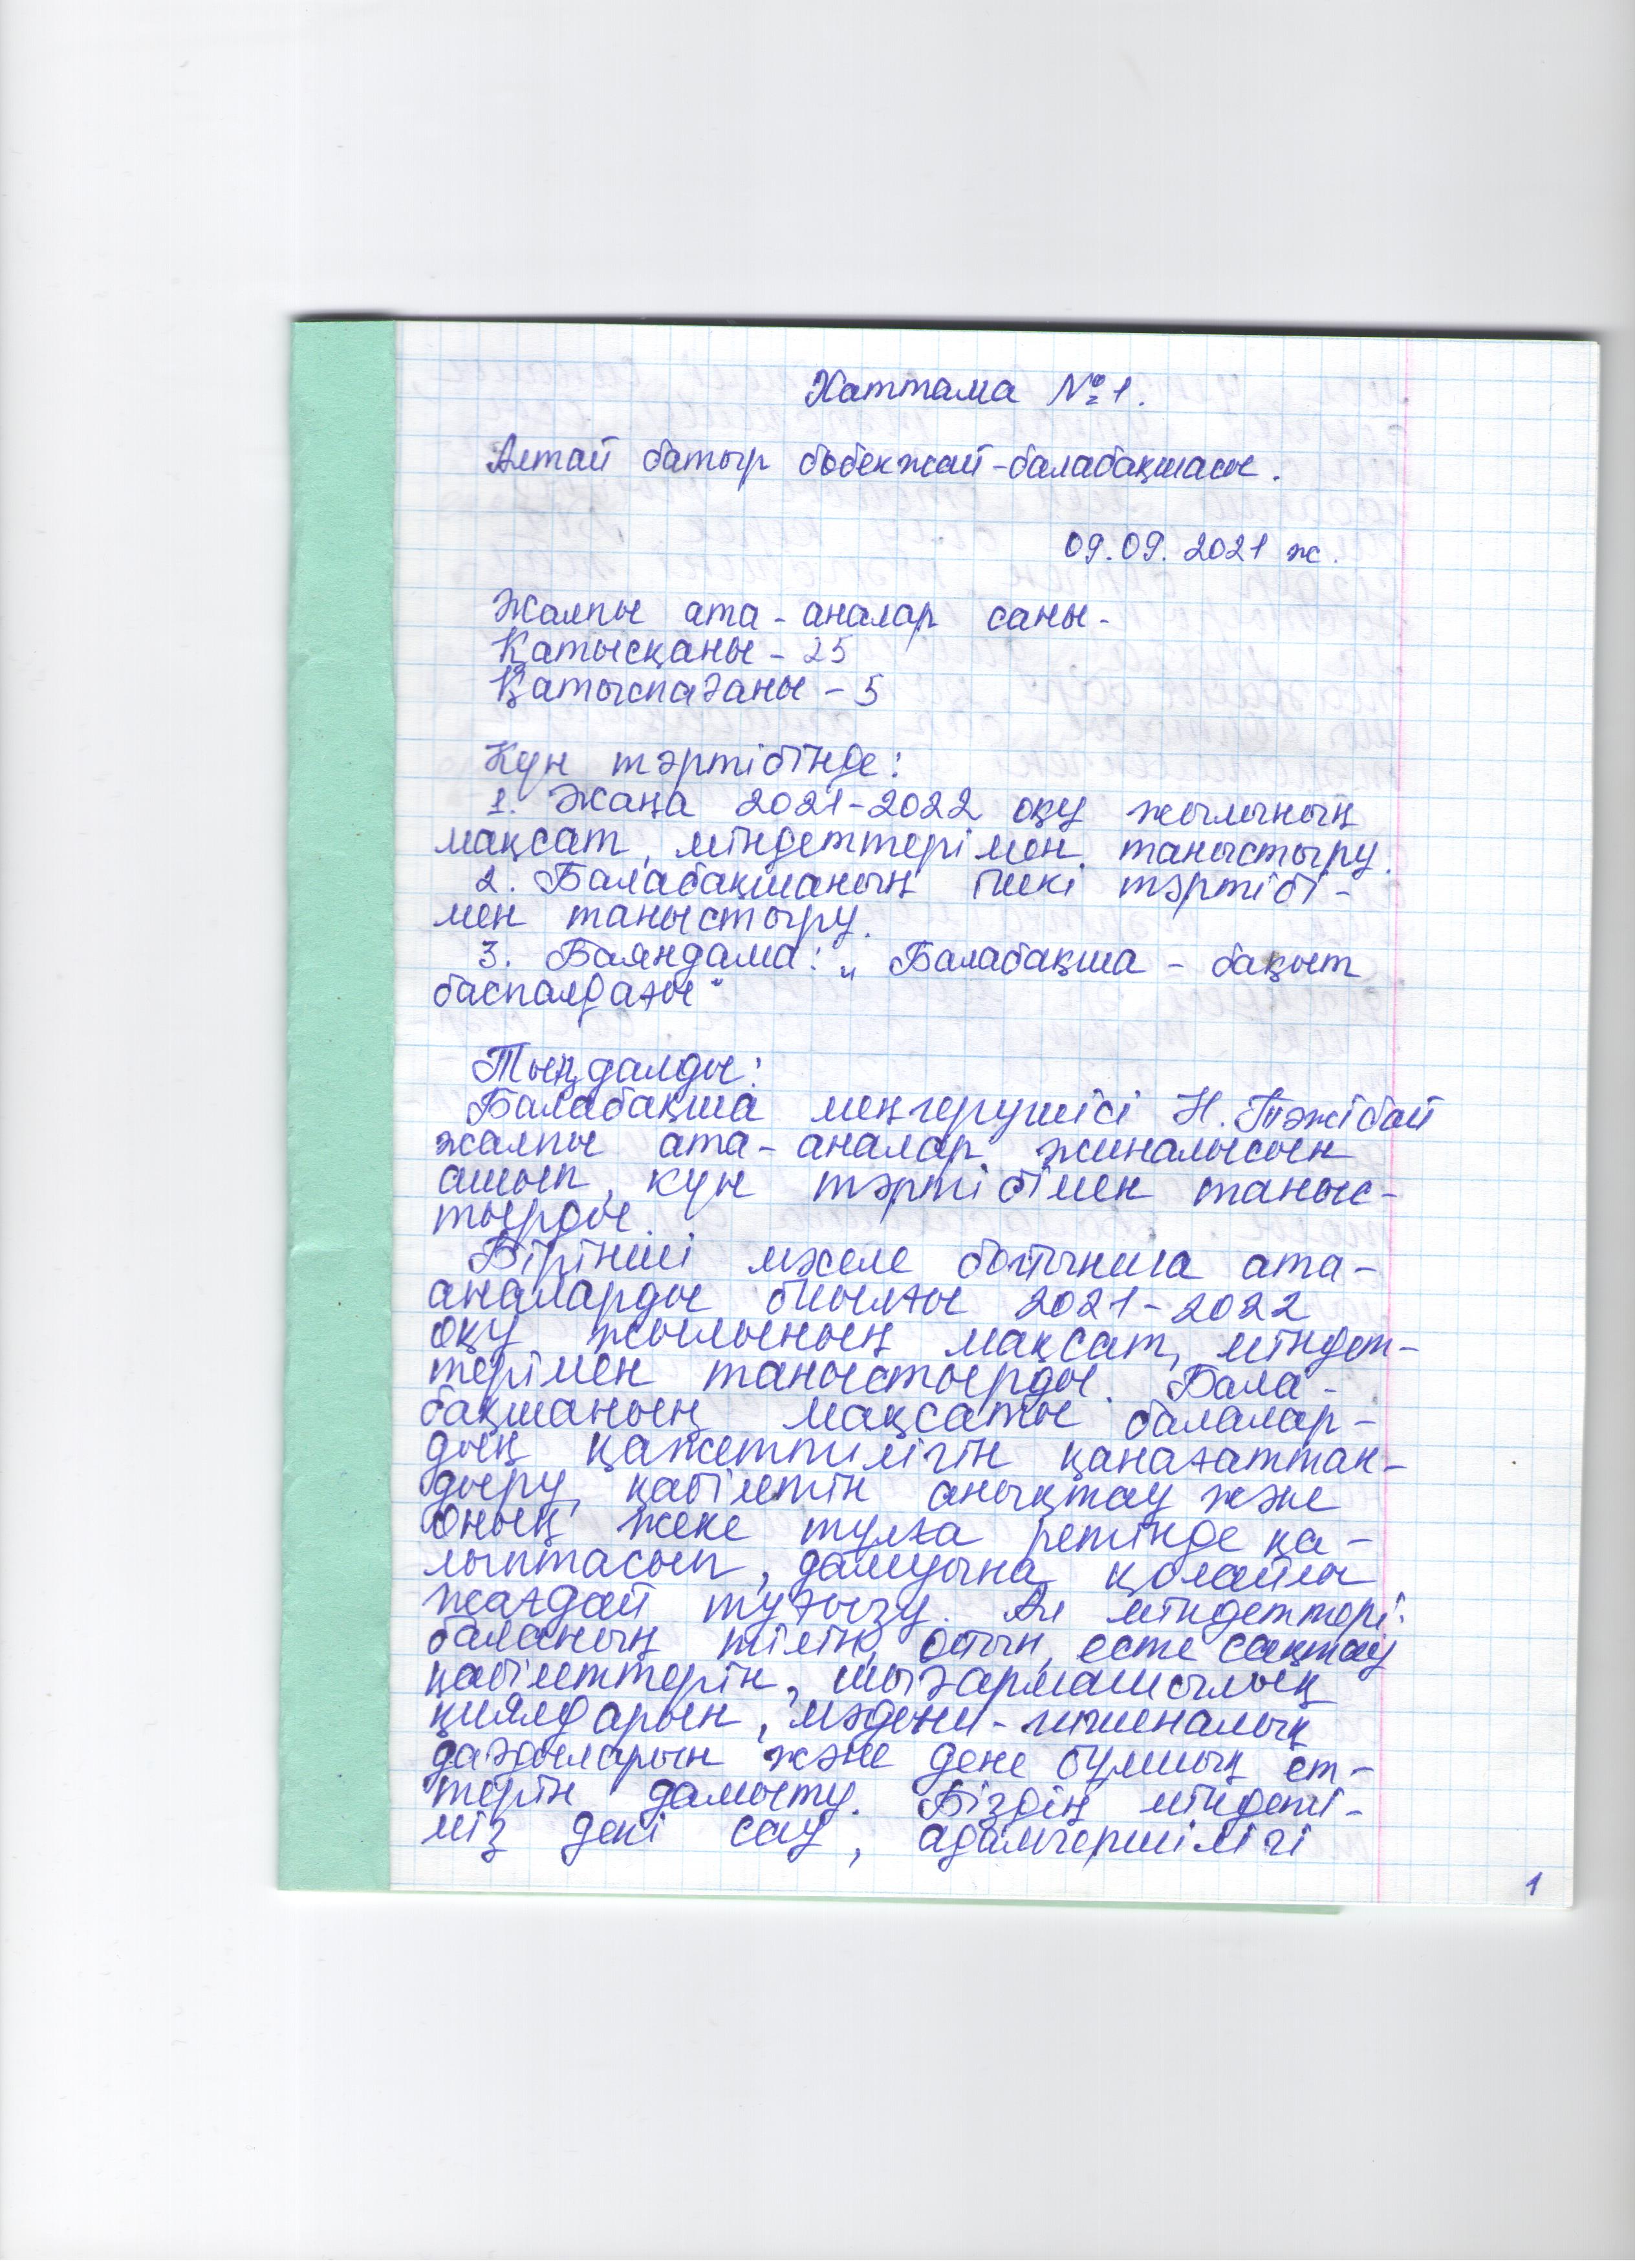 Хаттама №1.
Алтай батыр бөбекжай-балабақшасы.
09.09.2021 ж.
Жалпы ата-аналар саны-
Қатысқаны - 25
Қатыспағаны - 5
Күн тәртібінде:
1. Жаңа 2021-2022 оқу жылының
мақсат, міндеттерімен таныстыру.
2. Балабақшаның ішкі тәртібі-
мен таныстыру.
3. Баяндама: „Балабақша - бақыт
баспалдағы"
Тыңдалды:
Балабақша меңгерушісі Н. Тәжібай
жалпы ата-аналар жиналысын
ашып, күн тәртібімен таныс-
тырды.
Бірінші мәселе бойынша ата-
аналарды биылғы 2021-2022
оқу жылының мақсат, міндет-
терімен таныстырды. Бала-
бақшаның мақсаты балалар-
дың қажеттілігін қанағаттан-
дыру, қабілетін анықтау және
оның жеке тұлға ретінде қа-
лыптасып, дамуына қолайлы
жағдай туғызу. Ал міндеттері:
баланың тілін, ойын, есте сақтау
қабілеттерін, шығармашылық
қиялдарын, мәдени-гигиеналық
дағдыларын және дене бұлшық ет-
терін дамыту. Біздің міндеті-
міз дені сау, адамгершілігі
1